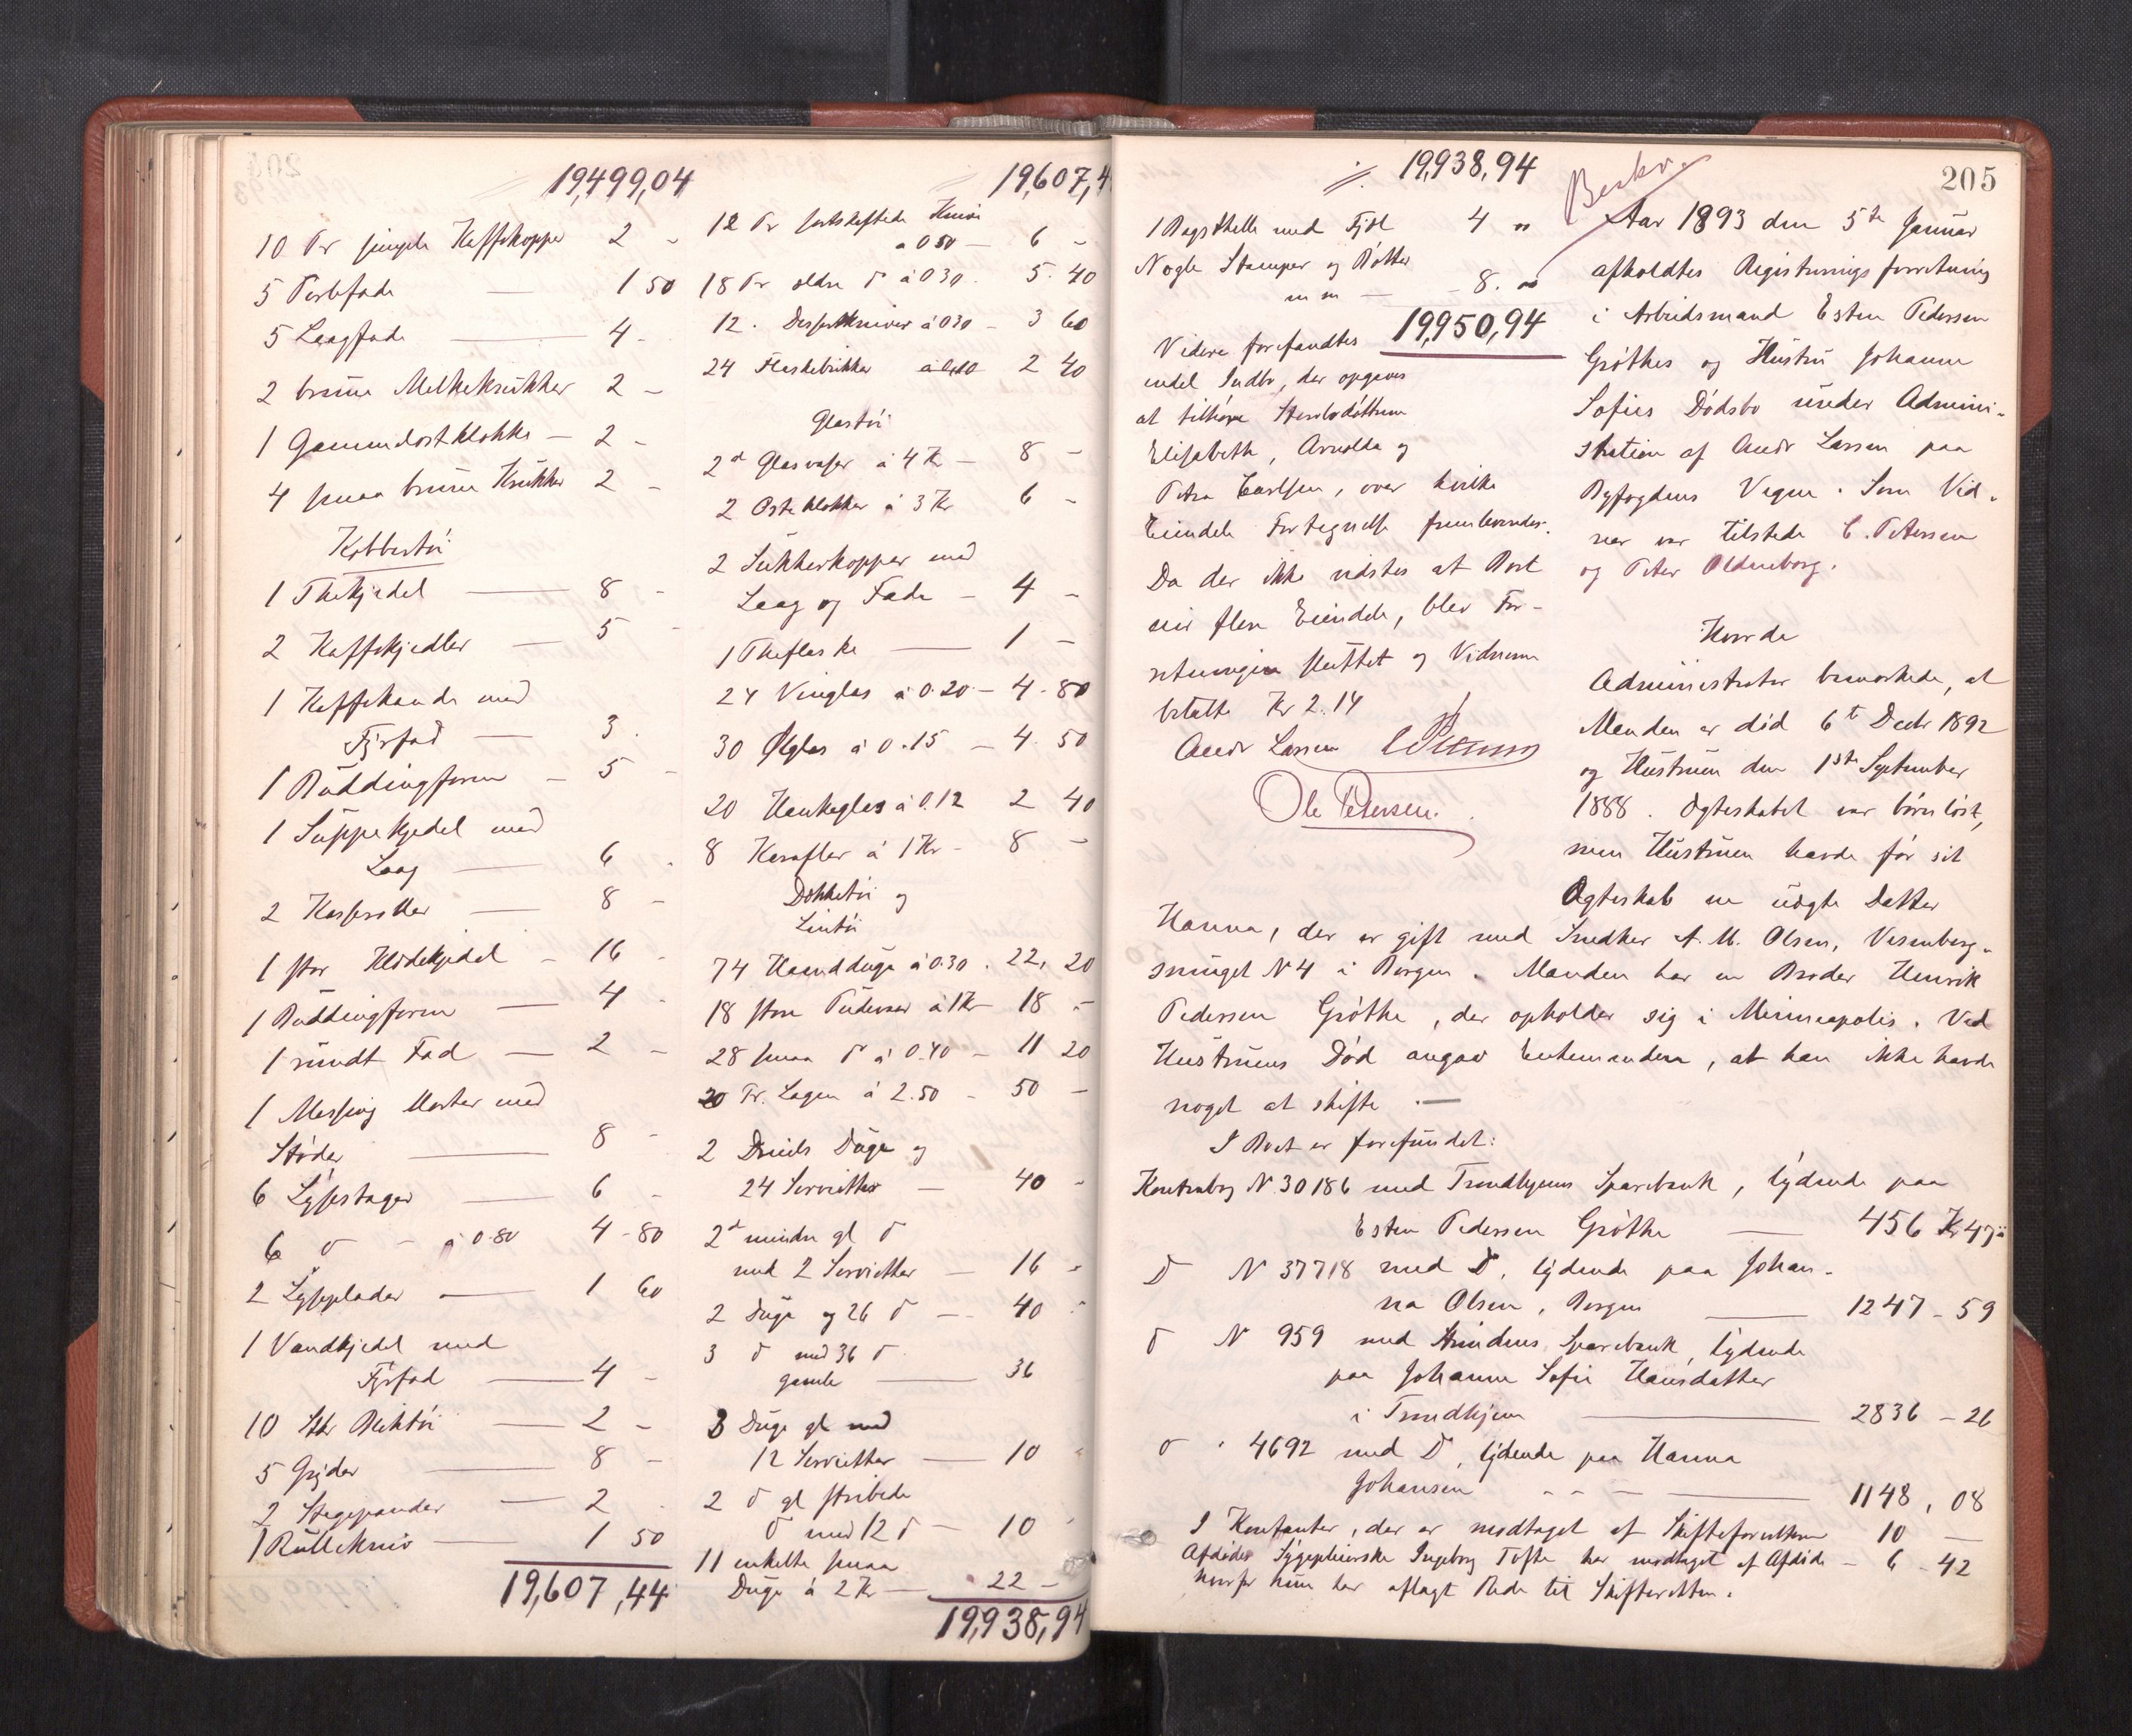 19499,04
10 Pr simple Kaffekopper 2 -
5 Terbefade — 1 50
5 Laagfade — 4 -
2 brune Melkekrukker 2 -
1 Gammelostklokke — 2 -
4 smaa brune Krukker 2 -
Kobbertöi
1 Thekjedel — 8 -
2 Kaffekjedler — 5 -
1 Kaffekande med
Fyrfad — 3 -
1 Buddingform — 5 -
1 Suppekjedel med
Laag — 6 -
2 Kasseroller — 8 -
1 stor Klædekjedel — 16 -
1 Buddingform — 4 -
1 rundt Fad — 2 -
1 Messing Morter med
Stöder — 8 -
6 Lysestager — 6 -
6 do - à 0.80 4 - 80
2 Lyseplader — 1 60
1 Vandkjedel med
Fyrfad — 4 -
10 Stk Bliktöi — 2 -
5 Gryder — 8 -
2 Stegepander — 2 -
1 Rulleknio — 1 50
19,607,44
19,607,4
12 Pr sortskeftede Knive
à 0 50 — 6 -
18 Pr ældre do à 0 30 . 5. 40
12 . Dessertkniver à 0 30 - 3 60
24 Flaskebrikker à 0.10 2 40
Glastöi
2 Glasvaser à 4 Kr — 8 -
2 Osteklokker à 3 Kr 6 -
2 Sukkerkopper med
Laag og Fade — 4 -
1 Theflaske — 1 -
24 Vinglas à 0.20 — 4 - 80
30 Ølglas à 0.15 — 4. 50
20 Hankeglas à 0.12 2 40
8 Karafler à 1 Kr - 8 -
Dækketöi og
Lintöi
74 Haandduge à 0.30 . 22, 20
18 store Pudevar à 1 Kr 18 -
28 smaa do à 0.40 — 11 20
20 Pr. Lagen à 2.50 - 50 -
2 Dreils Duge og
24 Servietter — 40 -
2 mindre gl do
med 2 Servietter — 16 -
2 Duge og 26 do — 40 -
3 do med 36 do
gamle — 36
3 Duge gl med
12 Servietter — 10 -
2 do gl stribede
do med 12 do — 10 -
11 enkelte smaa
Duge à 2 Kr — 22 -
19,938,94
19,938,94
1 Bagsthelle med Fjöl 4 "
Nogle Stamper og Bötter
m m — - 8. "
19,950,94
Videre forefandtes
endel Indbo, der opgaves
at tilhöre Stervbodöttrene
Elisabeth, Arnolda og
Petra Carlsen, over hvilke
Eiendele Fortegnelse fremlevendes.
Da der ikke vidstes at Boet
eier flere Eiendele, blev For-
retningen sluttet og Vidnerne
betalte Kr 2.14
Andr Larsen C Petersen
Ole Petersen.
205
Beskr.
Aar 1893 den 5te Januar
afholdtes Registreringsforretning
i Arbeidsmand Esten Pedersen
Gröthes og Hustru Johanne
Sofies Dödsbo under Admini-
stration af Andr Larsen paa
Byfogdens Vegne. Som Vid-
ner var tilstede C. Petersen
og Peter Oldenborg.
Hvorda
Administrator bemærkede, at
Manden er död 6te Decbr 1892
og Hustruen den 1ste September
1888. Ægteskabet var börnlöst,
men Hustruen havde för sit
Ægteskab en uægte Datter
Hanna, der er gift med Snedker A. M. Olsen, Vesenberg-
smuget N 4 i Bergen. Manden har en Broder Henrik
Pedersen Gröthe, der opholder sig i Minneapolis. Ved
Hustruens Död angav Enkemanden, at han ikke havde
noget at skifte. —
I Boet er forefundet:
Kontrabog N 30186 med Trondhjems Sparebank, lydende paa
Esten Pedersen Gröthe — 456 Kr 47 ö
Do N 37718 med Do, lydende paa Johan-
na Olsen, Bergen — 1247 - 59
do N 959 med Strindens Sparebank, lydende
paa Johanne Sofie Hansdatter
i Trondhjem — 2836 - 26
do " 4692 med Do, lydende paa Hanna
Johansen - - - — 1148, 08
I Kontanter, der er modtaget af Skifteforvalteren 10 —
Afdödes Sygepleierske Ingeborg Tofte har modtaget af Afdöde - 6 - 42
hvorfor hun har aflagt Rede til Skifteretten.